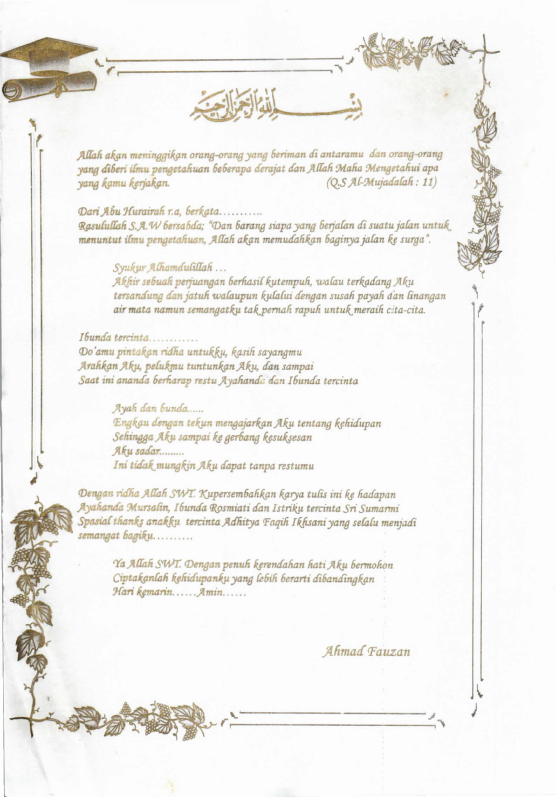 بسم الله الرحمن الرحيم
Allah akan meninggikan orang-orang yang beriman di antaramu dan orang-orang
yang diberi ilmu pengetahuan beberapa derajat dan Allah Maha Mengetahui apa
yang kamu kerjakan. (Q.S Al-Mujadalah : 11)
Dari Abu Hurairah r.a, berkata...........
Rasulullah S.A.W bersabda; "Dan barang siapa yang berjalan di suatu jalan untuk
menuntut ilmu pengetahuan, Allah akan memudahkan baginya jalan ke surga".
Syukur Alhamdulillah ...
Akhir sebuah perjuangan berhasil kutempuh, walau terkadang Aku
tersandung dan jatuh walaupun kulalui dengan susah payah dan linangan
air mata namun semangatku tak pernah rapuh untuk meraih cita-cita.
Ibunda tercinta............
Do'amu pintakan ridha untukku, kasih sayangmu
Arahkan Aku, pelukmu tuntunkan Aku, dan sampai
Saat ini ananda berharap restu Ayahanda dan Ibunda tercinta
Ayah dan bunda......
Engkau dengan tekun mengajarkan Aku tentang kehidupan
Sehingga Aku sampai ke gerbang kesuksesan
Aku sadar.........
Ini tidak mungkin Aku dapat tanpa restumu
Dengan ridha Allah SWT. Kupersembahkan karya tulis ini ke hadapan
Ayahanda Mursalin, Ibunda Rosmiati dan Istriku tercinta Sri Sumarmi
Spasial thanks anakku tercinta Adhitya Faqih Ikhsani yang selalu menjadi
semangat bagiku..........
Ya Allah SWT. Dengan penuh kerendahan hati Aku bermohon
Ciptakanlah kehidupanku yang lebih berarti dibandingkan
Hari kemarin......Amin......
Ahmad Fauzan